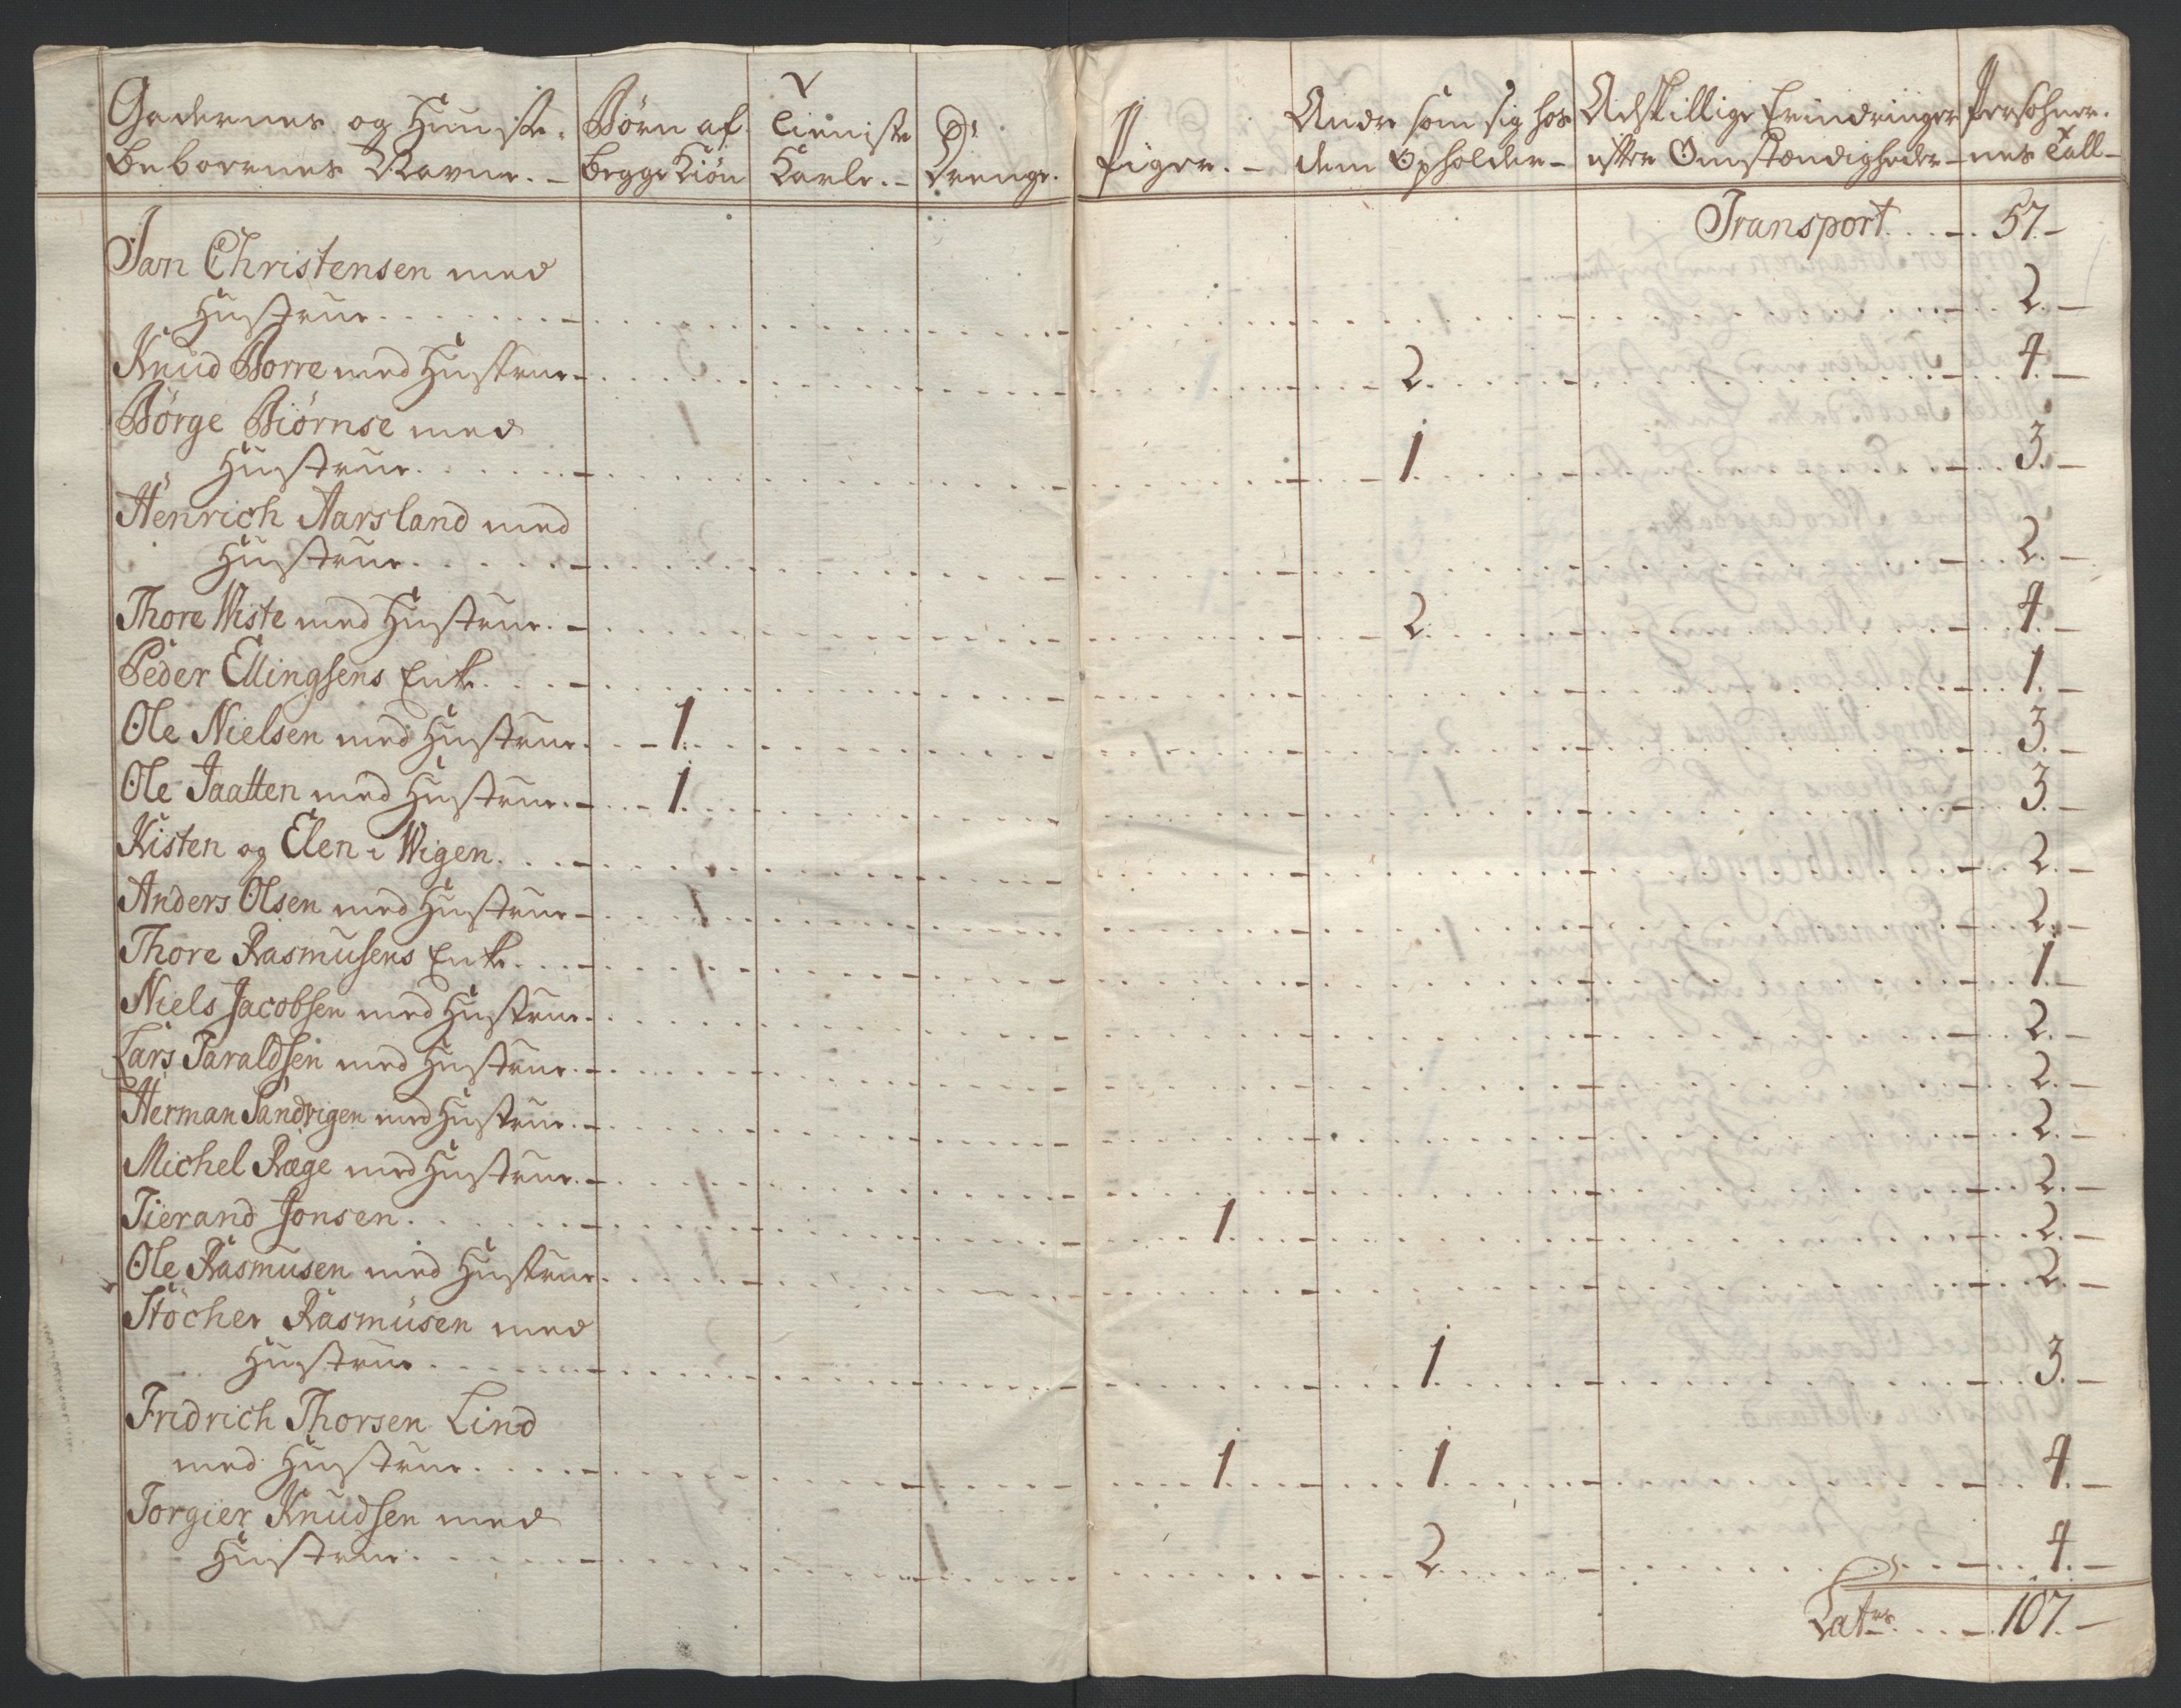 Gadernes og Huusse- Börn af Tieniste Dº Piger. Andre som sig hos Adskillige Erindringer Persohner-
beboernes Navne. begge Kiön Karle. Drenge. dem Opholder efter Omstændigheder nes Tall
Transport 57.
Jan Christensen med
Hustrue 2.
Knud Borre med Hustrue 2. 4.
Börge Biörnse med
Hustrue 1. 3.
Henrich Aarsland med
Hustrue 2.
Thore Wiste med Hustrue 2. 4.
Peder Ellingsens Enke 1.
Ole Nielsen med Hustrue 1. 3.
Ole Jaatten med Hustrue 1. 3.
Kisten og Elen i Wigen 2.
Anders Olsen med Hustrue 2.
Thore Rasmusens Enke 1.
Niels Jacobsen med Hustrue 2.
Lars Taraldsen med Hustrue 2.
Herman Sandvigen med Hustrue 2.
Michel Ræge med Hustrue 2.
Tierand Jonsen 1. 2.
Ole Rasmusen med Hustrue 2.
Stöcher Rasmusen med
Hustrue 1. 3.
Fridrich Thorsen Lind
med Hustrue 1. 1. 4.
Torgier Knudsen med
Hustrue 2. 4.
Latus 107.